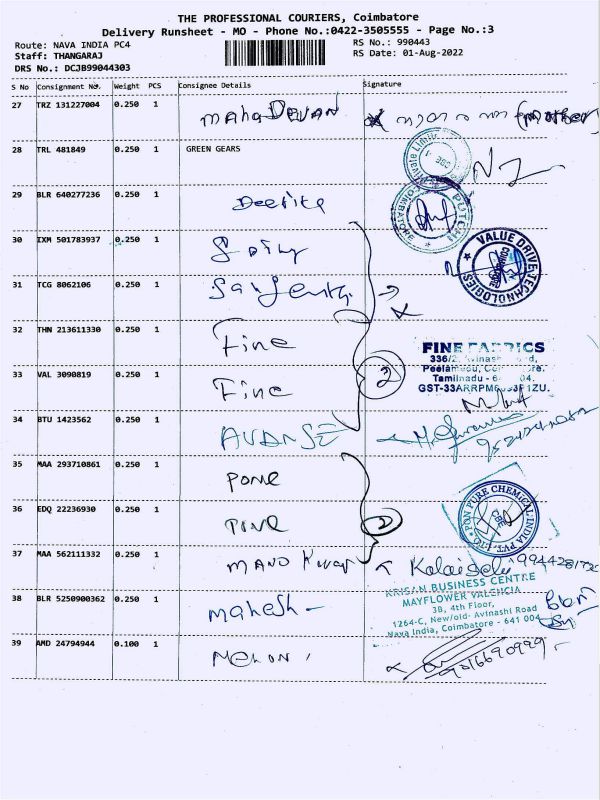 THE PROFESSIONAL COURIERS, Coimbatore
Delivery Runsheet - MO - Phone No.:0422-3505555 - Page No.:3
Route: NAVA INDIA PC4
RS No.: 990443
Staff: THANGARAJ
RS Date: 01-Aug-2022
DRS No.: DCJB99044303
S No Consignment No. Weight PCS Consignee Details Signature
27 TRZ 131227004 0.250 1 MAHADEVAN (mother)
28 TRL 481849 0.250 1 GREEN GEARS
29 BLR 640277236 0.250 1 Deepika
30 IXM 501783937 0.250 1
VALUE DRIVE TECHNOLOGIES
31 TCG 8062106 0.250 1
32 THN 213611330 0.250 1 Fine
FINE FABRICS
336/2, Avinashi
Peelamedu,
Tamilnadu -
33 VAL 3090819 0.250 1 Fine 2
34 BTU 1423562 0.250 1 AVANSE
35 MAA 293710861 0.250 1 PONE
36 EDQ 22236930 0.250 1 PONE 2
PON PURE CHEMICAL INDIA PVT. LTD. CBE
37 MAA 562111332 0.250 1 MANO Kumar Kalaiselvi
KRISAN BUSINESS CENTRE
MAYFLOWER VALENCIA
3B, 4th Floor,
38 BLR 5250900362 0.250 1 Mahesh -
1264-C, New/old- Avinashi Road
Nava India, Coimbatore - 641 004
39 AMD 24794944 0.100 1 Melon 9016690999